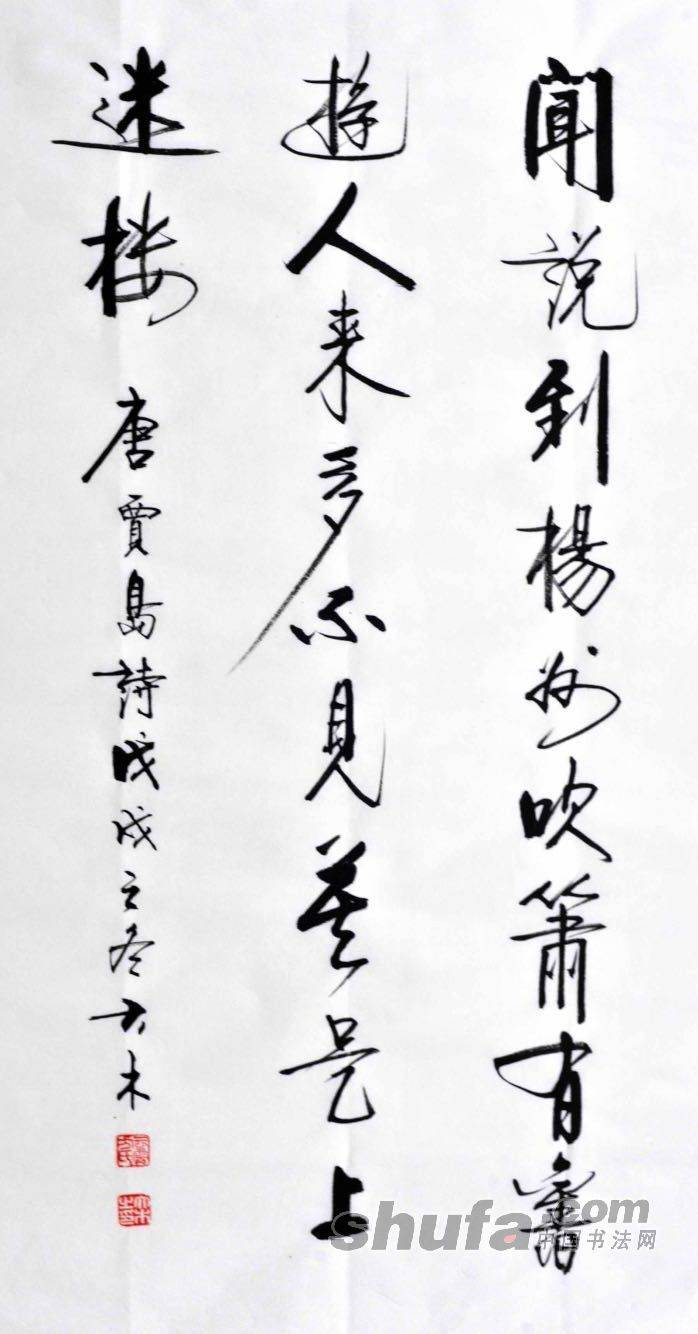 聞說到楊州吹簫有舊
遊人来多不見莫是上
迷楼
唐賈島詩戊戌之冬大木
shufa.com
中国书法网